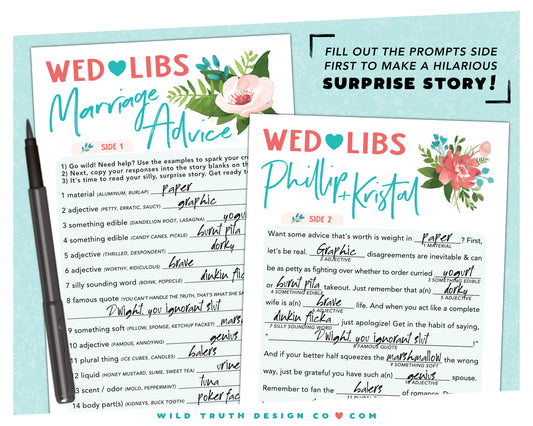 FILL OUT THE PROMPTS SIDE
FIRST TO MAKE A HILARIOUS
SURPRISE STORY!
WED LIBS
Marriage
Advice
SIDE 1
1) Go wild! Need help? Use the examples to spark your cre
2) Next, copy your responses into the story blanks on th
3) It's time to read your silly, surprise story. Get ready t
1 material (ALUMINUM, BURLAP) paper
2 adjective (PETTY, ERRATIC, SAUCY) graphic
3 something edible (DANDELION ROOT, LASAGNA) yogu
4 something edible (CANDY CANES, PICKLE) burnt pita
5 adjective (THRILLED, DESPONDENT) dorky
6 adjective (WORTHY, RIDICULOUS) brave
7 silly sounding word (BOINK, POPSICLE) dinkin flic
8 famous quote (YOU CAN'T HANDLE THE TRUTH, THAT'S WHAT SHE SA
Dwight, you ignorant slut
9 something soft (PILLOW, SPONGE, KETCHUP PACKET) marsh
10 adjective (FAMOUS, ANNOYING) genius
11 plural thing (ICE CUBES, CANDLE) balers
12 liquid (HONEY MUSTARD, SLIME, SWEET TEA) urine
13 scent / odor (MOLD, PEPPERMINT) tuna
14 body part(s) (KIDNEYS, BUCK TOOTH) poker fac
WED LIBS
Phillip + Kristal
SIDE 2
Want some advice that's worth is weight in paper ? First,
1 MATERIAL
let's be real. Graphic disagreements are inevitable & can
2 ADJECTIVE
be as petty as fighting over whether to order curried yogurt
3 SOMETHING EDIBLE
or burnt pita takeout. Just remember that a(n) dorky
4 SOMETHING EDIBLE 5 ADJECTIVE
wife is a(n) brave life. And when you act like a complete
6 ADJECTIVE
dinkin flicka just apologize! Get in the habit of saying,
7 SILLY SOUNDING WORD
"Dwight, you ignorant slut !"
8 FAMOUS QUOTE
And if your better half squeezes the marshmallow the wrong
9 SOMETHING SOFT
way, just be grateful you have such a(n) genius spouse.
10 ADJECTIVE
Remember to fan the balers of romance. D
WILD TRUTH DESIGN CO COM